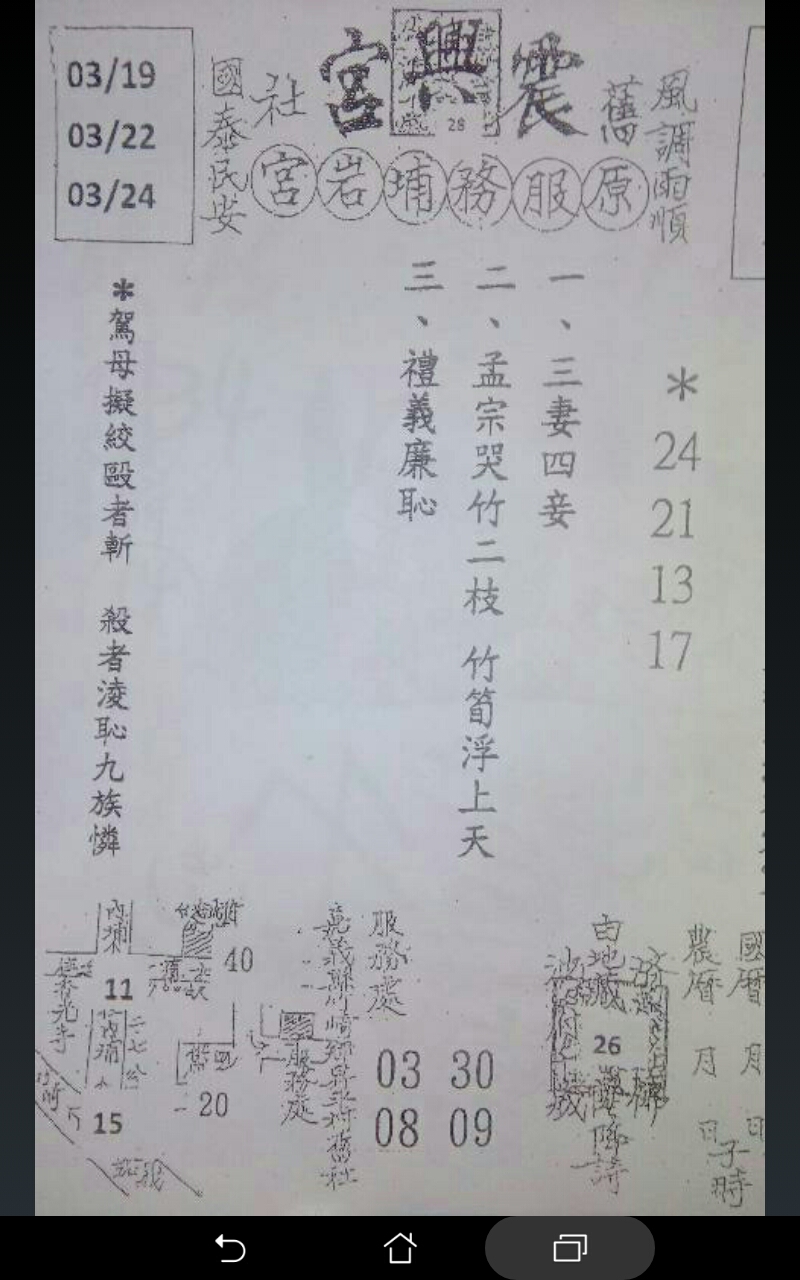 風調雨順
舊
震興宮
28
社
國泰民安
原服務埔岩宮
03/19
03/22
03/24
*
24
21
13
17
一、三妻四妾
二、孟宗哭竹二枝 竹筍浮上天
三、禮義廉恥
*駕母擬絞毆者斬 殺者淩恥九族憐
國曆 月 日
農曆 月 日
子時
由地藏
26
降詩
服務處
03 30
08 09
嘉義縣竹崎鄉
舊社
服務處
40
內埔
11
香光寺
內埔
15
20